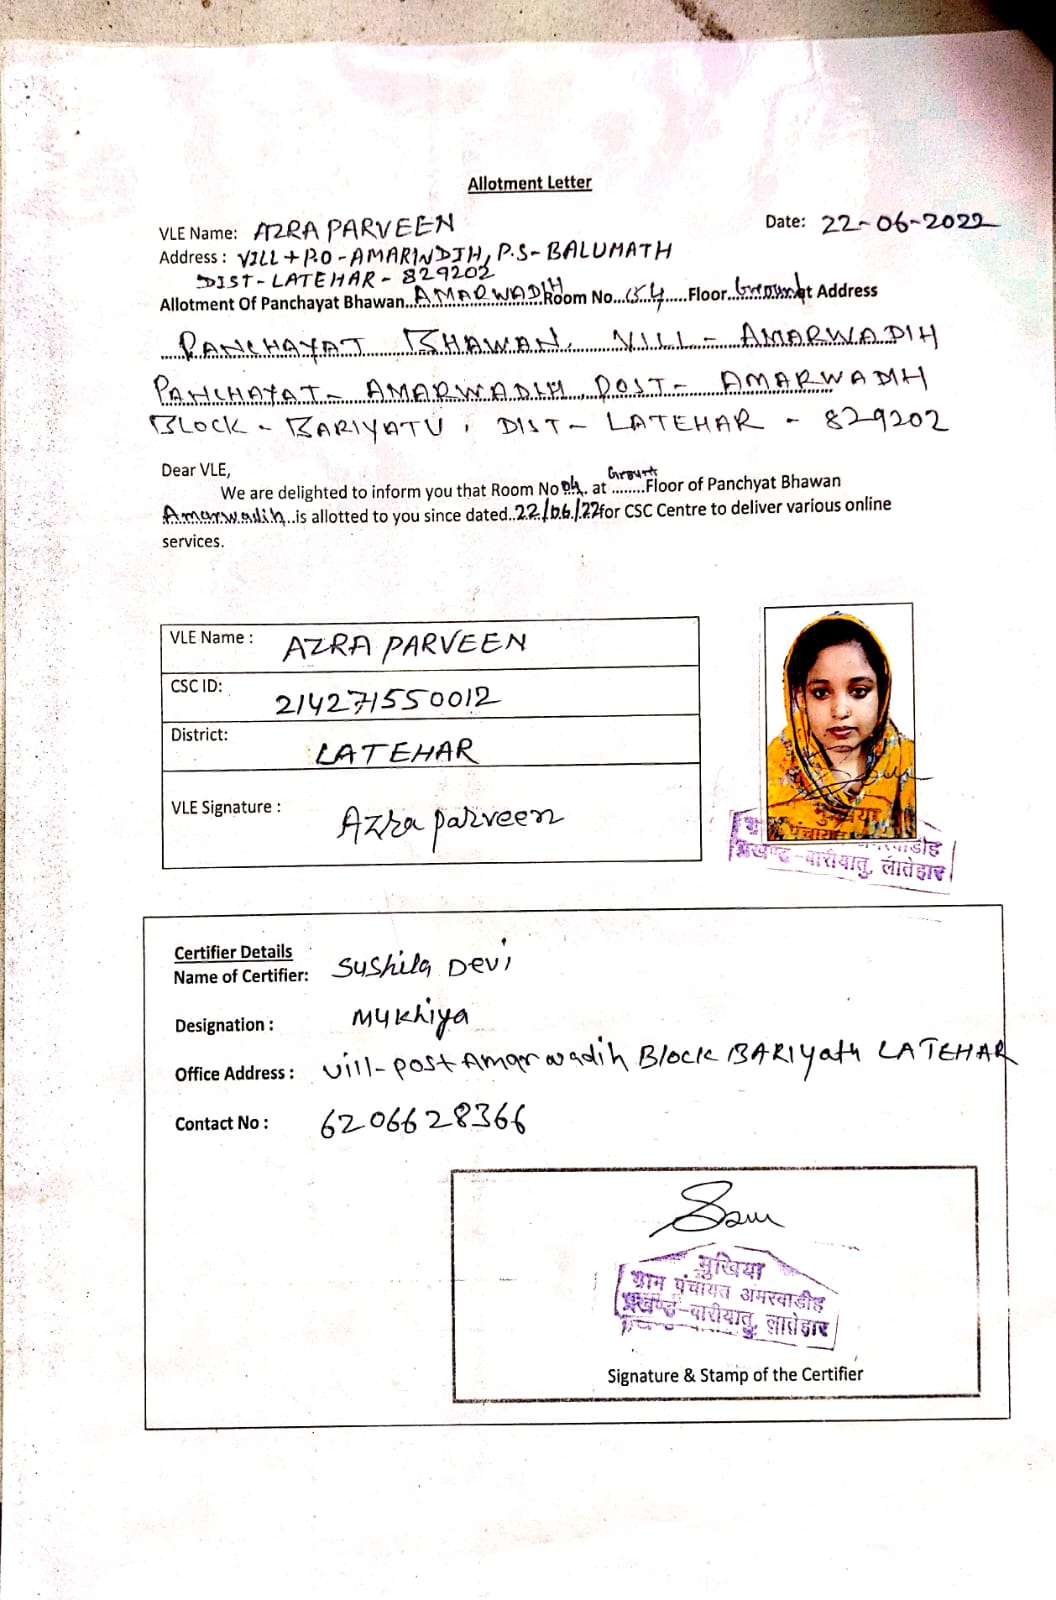 Allotment Letter
VLE Name: AZRA PARVEEN Date: 22-06-2022
Address : VILL + P.O - AMARINDIH, P.S- BALUMATH
DIST- LATEHAR - 829202
Allotment Of Panchayat Bhawan..AMARWADIH Room No... Floor..Ground at Address
PANCHAYAT BHAWAN, VILL - AMARWADIH
PANCHAYAT- AMARWADIH, POST- AMARWADIH
BLOCK - BARIYATU, DIST- LATEHAR - 829202
Dear VLE,
We are delighted to inform you that Room No 04. at ........Floor of Panchyat Bhawan
Amarwadih..is allotted to you since dated..22/06/22 for CSC Centre to deliver various online
services.
VLE Name : AZRA PARVEEN
CSC ID: 214271550012
District: LATEHAR
VLE Signature : Azra parveen
मुखिया
पंचायत अमरवाडीह
प्रखण्ड-बारीयातु, लातेहार
Certifier Details
Name of Certifier: Sushila Devi
Designation : Mukhiya
Office Address : Vill-post Amarwadih Block BARIyath LATEHAR
Contact No : 6206628366
मुखिया
ग्राम पंचायत अमरवाडीह
प्रखण्ड-बारीयातु, लातेहार
Signature & Stamp of the Certifier